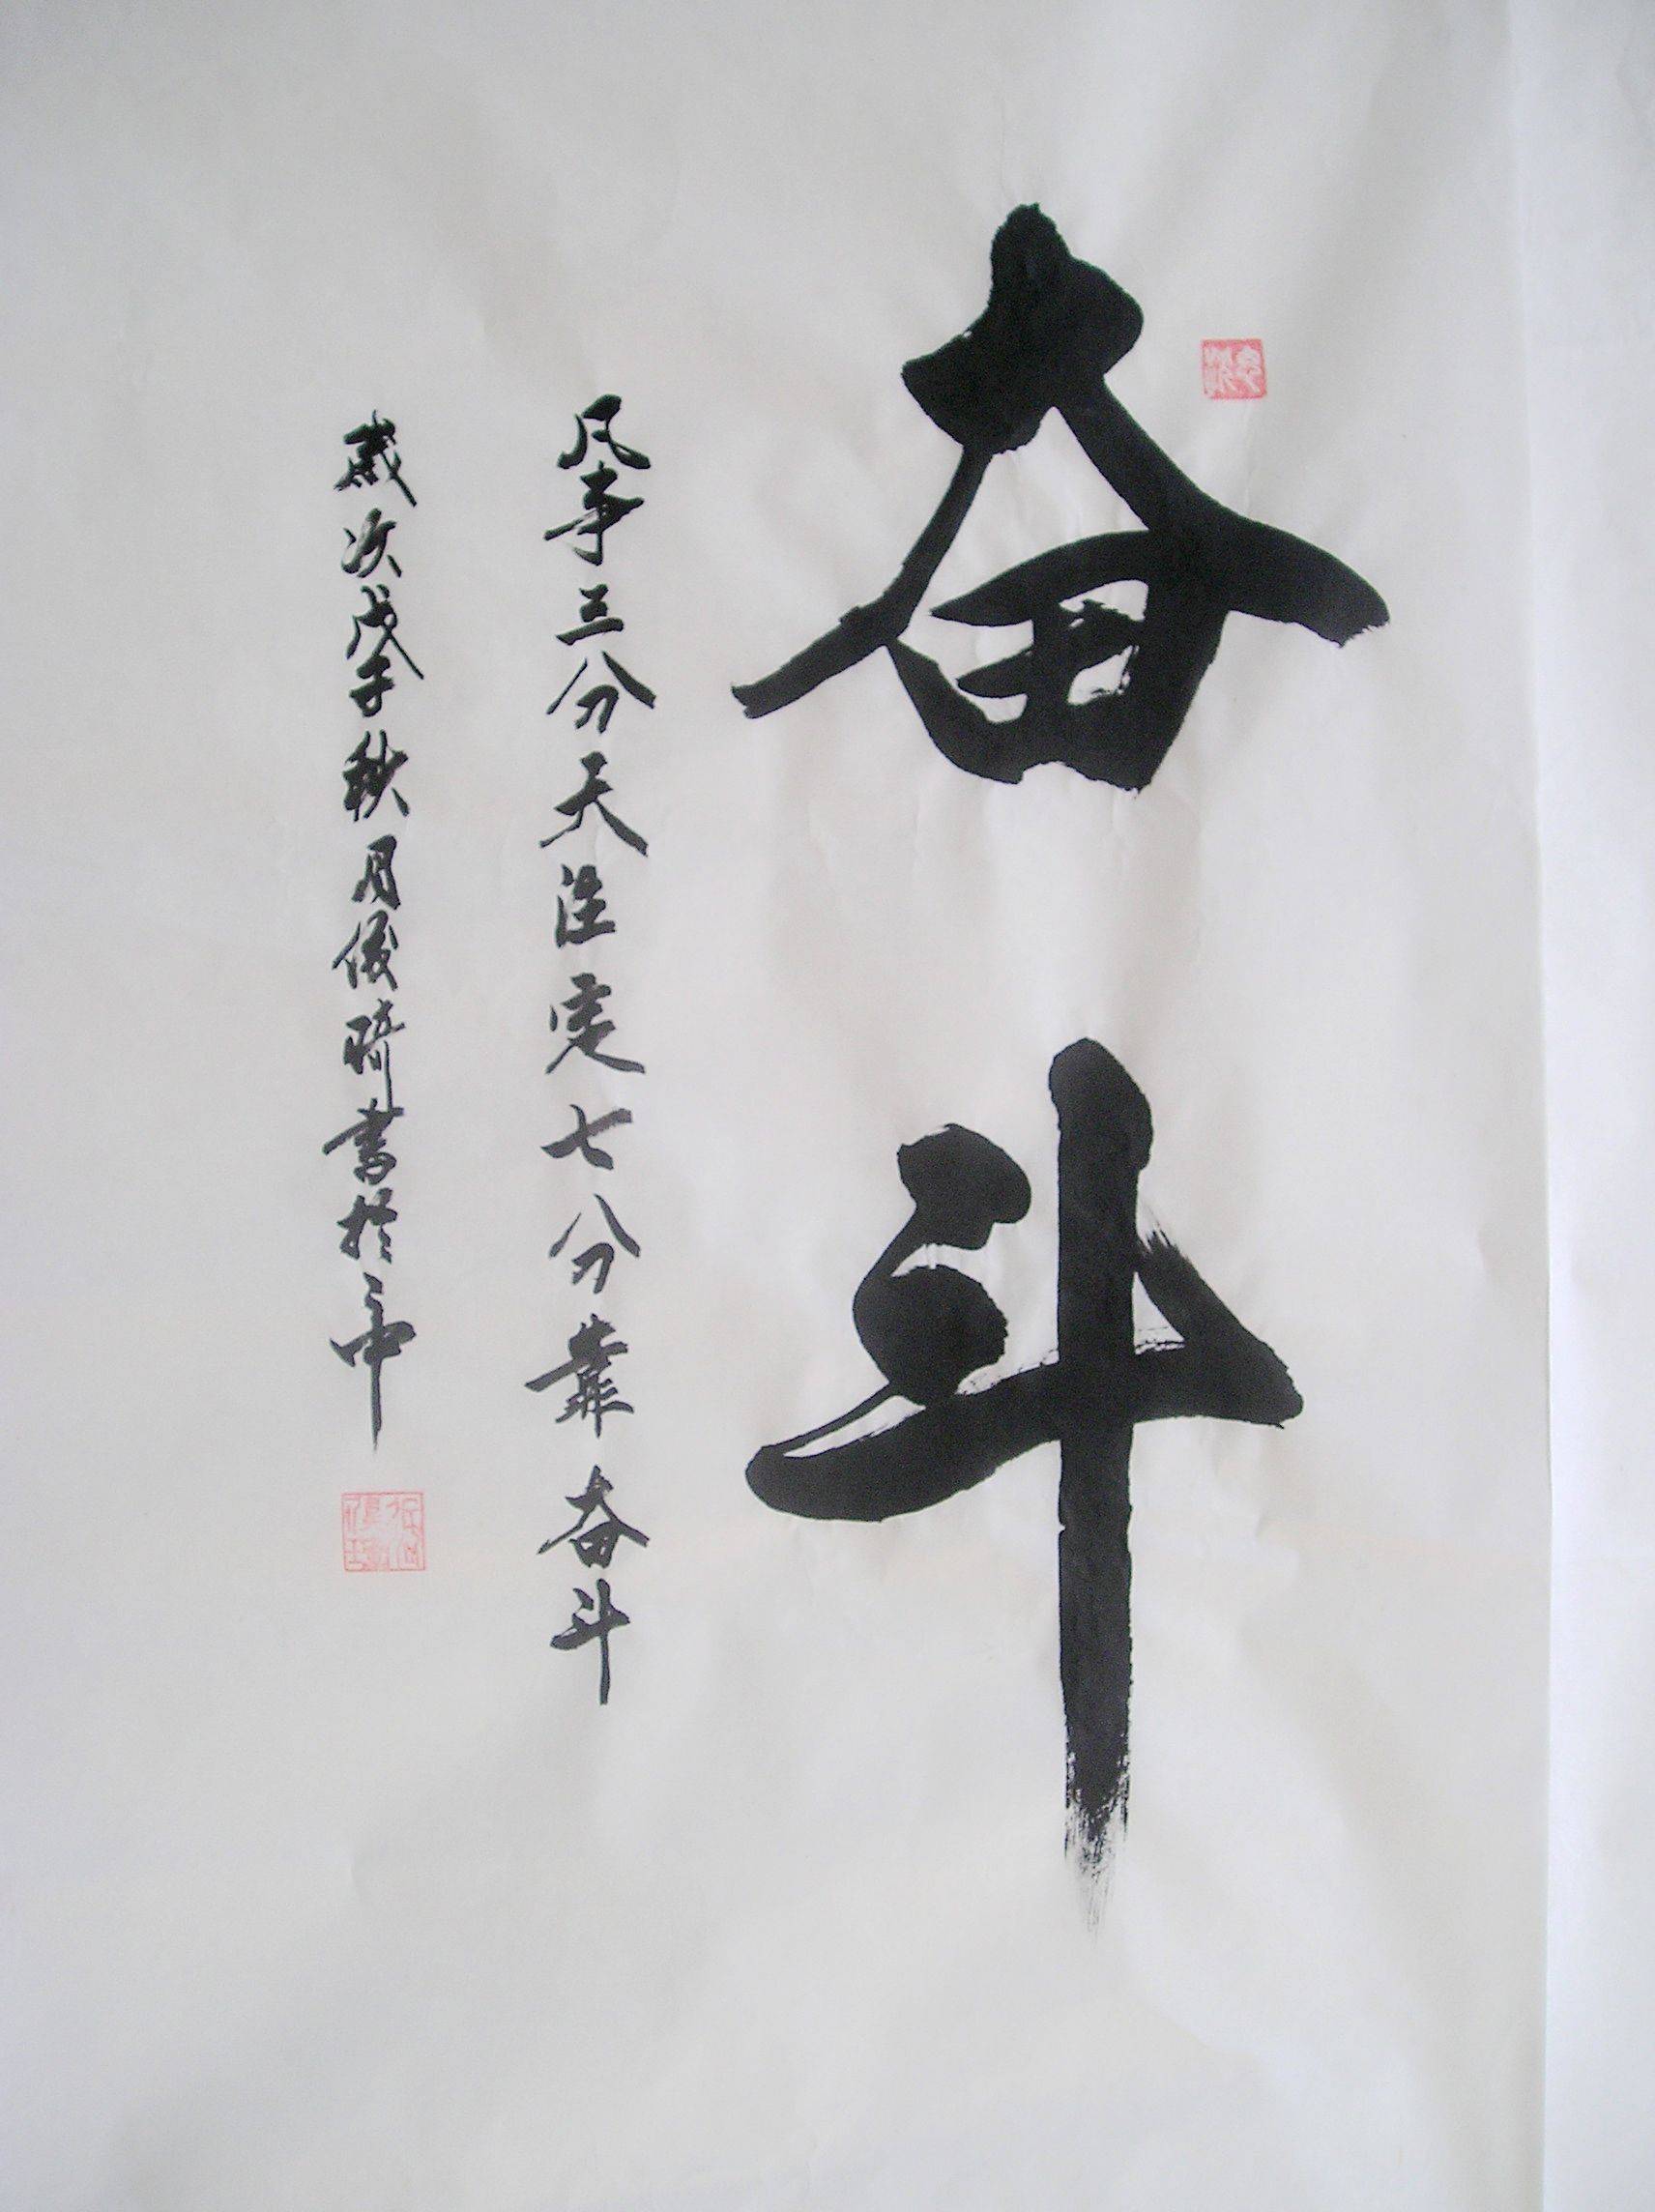 奋斗
凡事三分天注定七分靠奋斗
岁次戊子秋月俊琦书於